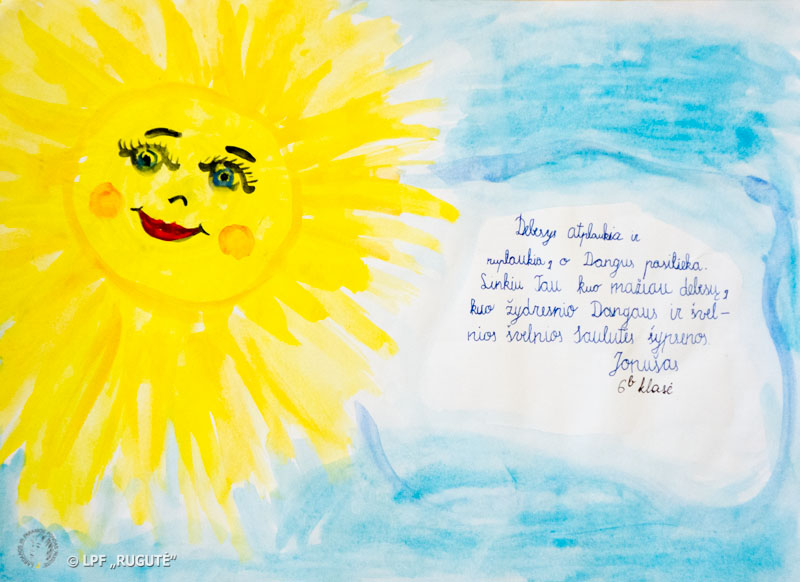 Debesys atplaukia ir
nuplaukia, o Dangus pasilieka.
Linkiu Tau kuo mažiau debesų,
kuo žydresnio Dangaus ir švel-
nios švelnios Saulutės šypsenos.
Jonušas
6b klasė
© LPF „RUGUTĖ“